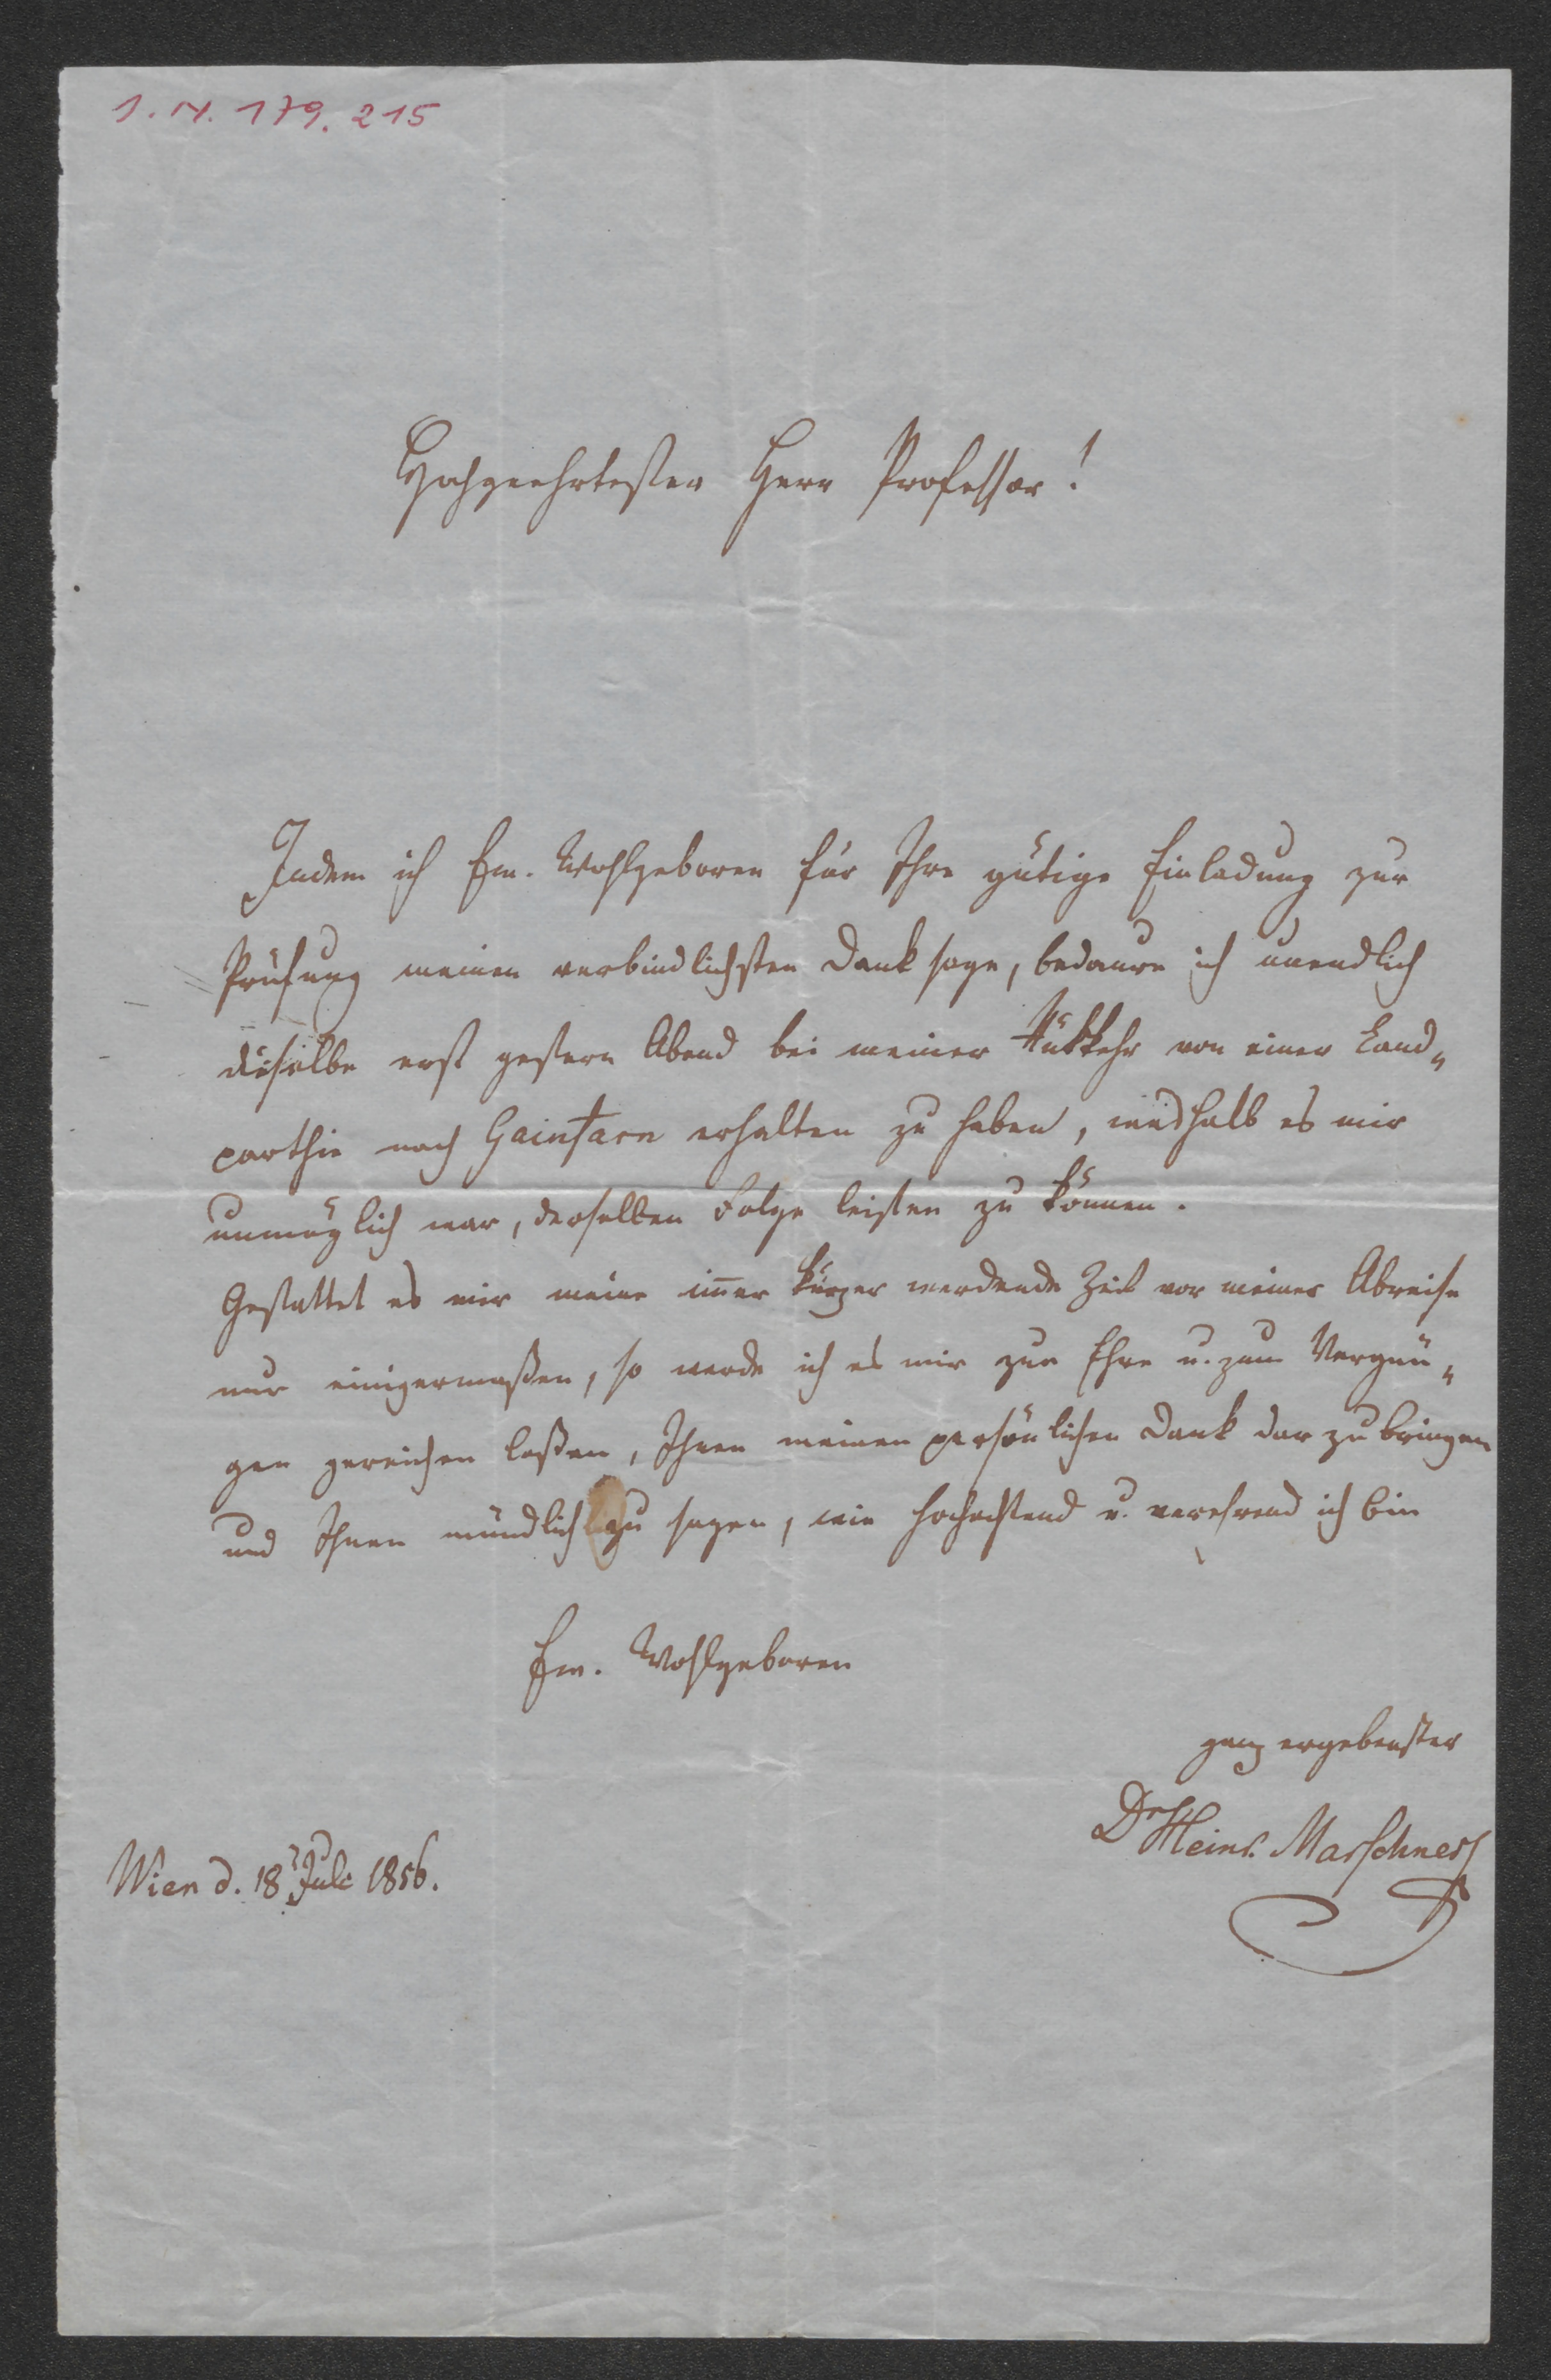 I.N. 179.215
Hochgeehrtester Herr Professor!
Indem ich Ew. Wohlgeboren für Ihre gütige Einladung zur
Prüfung meinen verbindlichsten Dank sage, bedaure ich unendlich
dieselbe erst gestern Abend bei meiner Rükkehr von einer Land„
parthie nach Gainfarn erhalten zu haben, weshalb es mir
unmöglich war, derselben Folge leisten zu können.
Gestattet es mir meine im̅er kürzer werdende Zeit vor meiner Abreise
nur einigermaßen, so werde ich es mir zur Ehre u. zum Vergnü„
gen gereichen laßen, Ihnen meinen persönlichen Dank dar zu bringen
und Ihnen mündlich zu sagen, wie hochachtend u. verehrend ich bin
Ew. Wohlgeboren
ganz ergebenster
Dr Heinr. Marschner
Wien d. 18t Juli 1856.